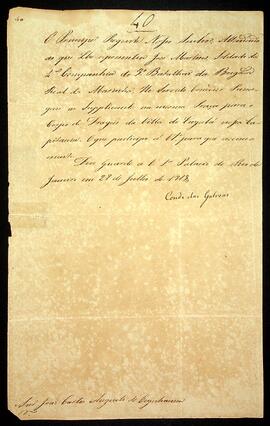 40
40
O Principe Regente Nosso Senhor, Attendendo
ao que Lhe representou José Martins Soldado da
4ª Companhia do 2º Batalhão da Brigada
Real da Marinha: He Servido
que o Supplicante na mesma Praça para o
Corpo de Dragões da Villa do Cuyabá nessa Ca
pitania. O que participo a VSª para que assim o exe
cute.
Deos guarde a VSª Palacio do Rio de
Janeiro em 28 de Julho de 1813
Conde das Galveas
Snr João Carlos Augusto de Oeynhausen